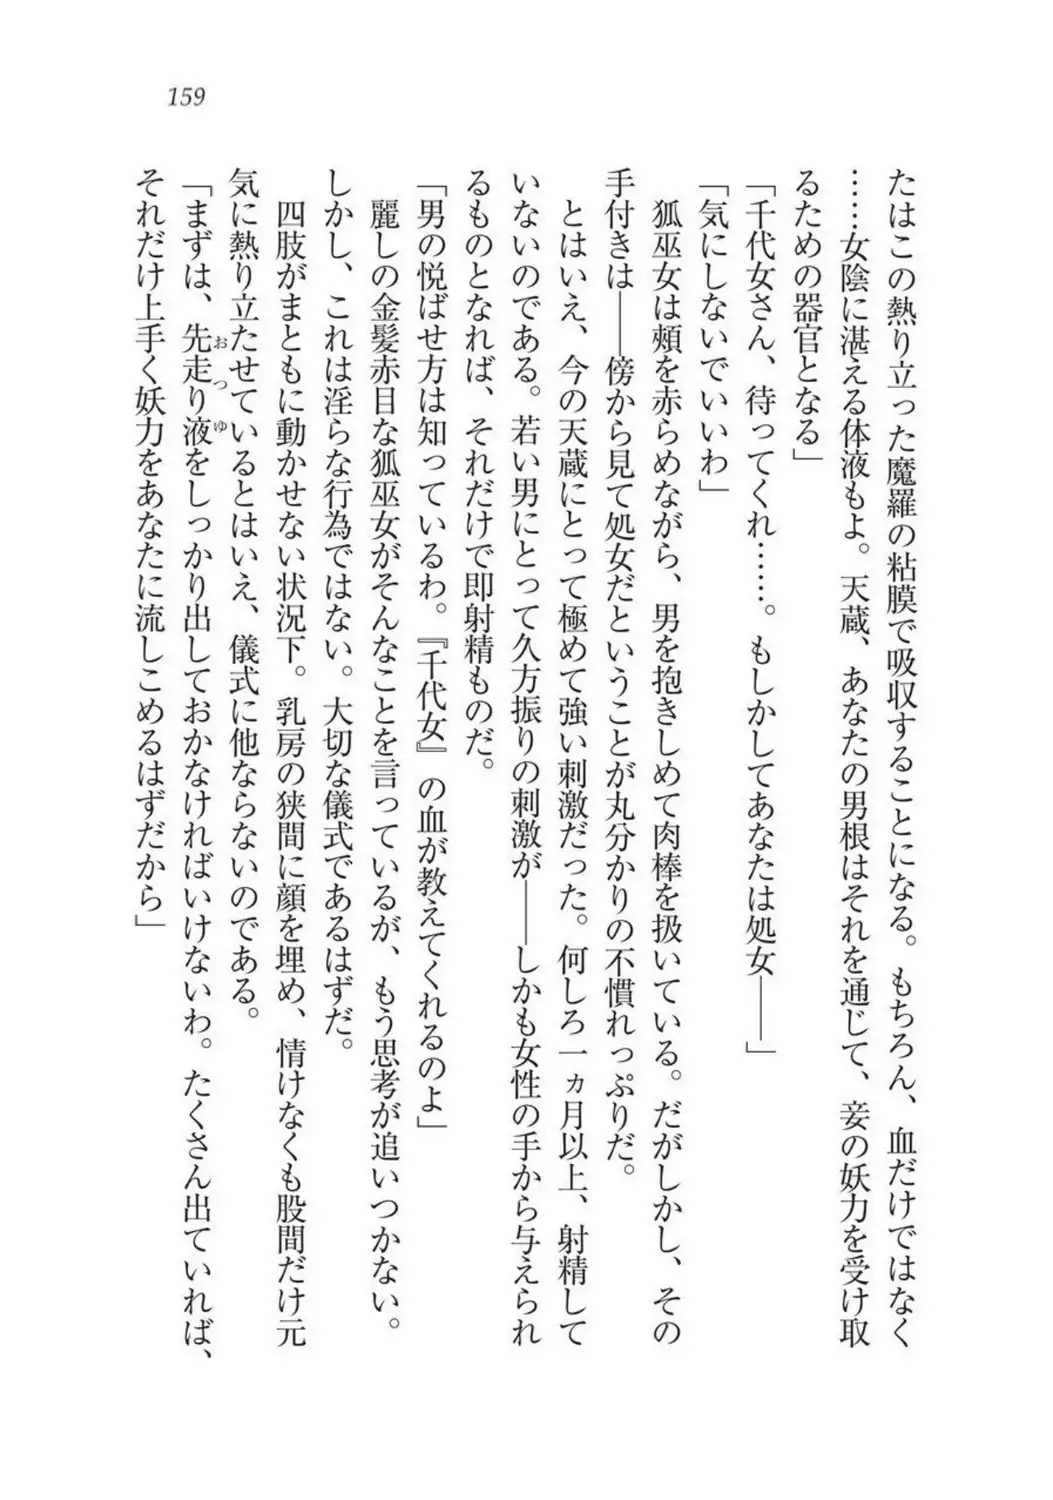 159
たはこの熱り立った魔羅の粘膜で吸収することになる。もちろん、血だけではなく
……女陰に湛える体液もよ。天蔵、あなたの男根はそれを通じて、妾の妖力を受け取
るための器官となる」
「千代女さん、待ってくれ……。もしかしてあなたは処女――」
「気にしないでいいわ」
狐巫女は頬を赤らめながら、男を抱きしめて肉棒を扱いている。だがしかし、その
手付きは――傍から見て処女だということが丸分かりの不慣れっぷりだ。
とはいえ、今の天蔵にとって極めて強い刺激だった。何しろ一ヵ月以上、射精して
いないのである。若い男にとって久方振りの刺激が――しかも女性の手から与えられ
るものとなれば、それだけで即射精ものだ。
「男の悦ばせ方は知っているわ。『千代女』の血が教えてくれるのよ」
麗しの金髪赤目な狐巫女がそんなことを言っているが、もう思考が追いつかない。
しかし、これは淫らな行為ではない。大切な儀式であるはずだ。
四肢がまともに動かせない状況下。乳房の狭間に顔を埋め、情けなくも股間だけ元
気に熱り立たせているとはいえ、儀式に他ならないのである。
「まずは、先走り液おつゆをしっかり出しておかなければいけないわ。たくさん出ていれば、
それだけ上手く妖力をあなたに流しこめるはずだから」